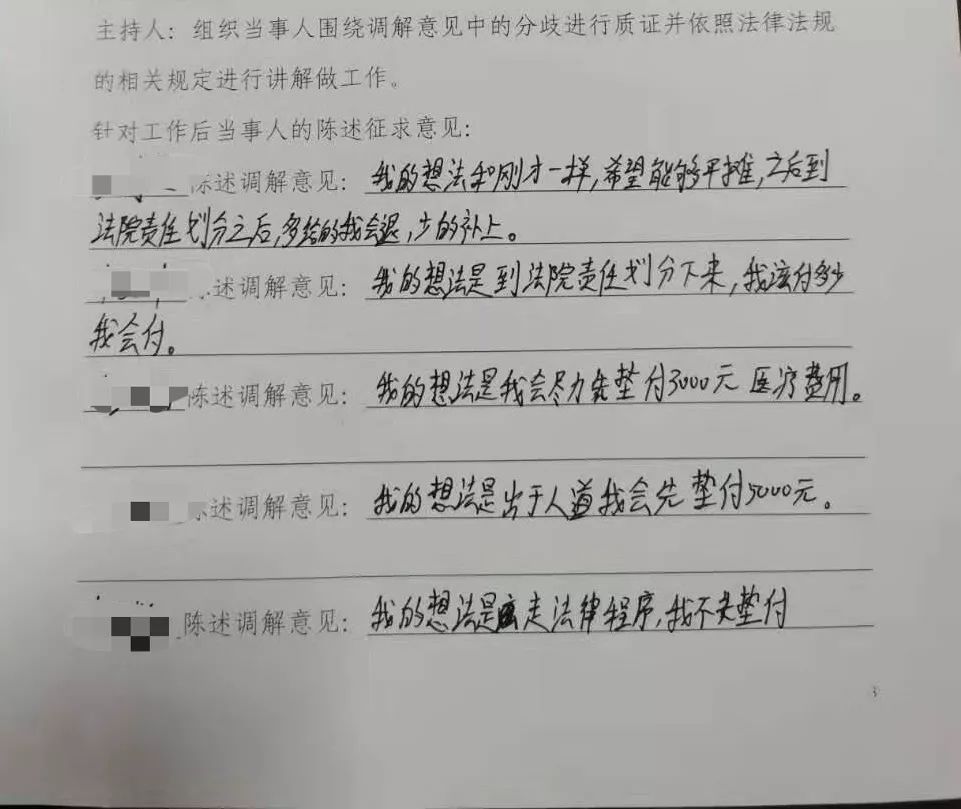 主持人：组织当事人围绕调解意见中的分歧进行质证并依照法律法规
的相关规定进行讲解做工作。
针对工作后当事人的陈述征求意见：
陈述调解意见：我的想法和刚才一样，希望能够平摊，之后到
法院责任划分之后，多给的我会退，少的补上。
陈述调解意见：我的想法是到法院责任划分下来，我该付多少
我会付。
陈述调解意见：我的想法是我会尽力先垫付3000元医疗费用。
陈述调解意见：我的想法是出于人道我会先垫付5000元。
陈述调解意见：我的想法是走法律程序，我不先垫付
3